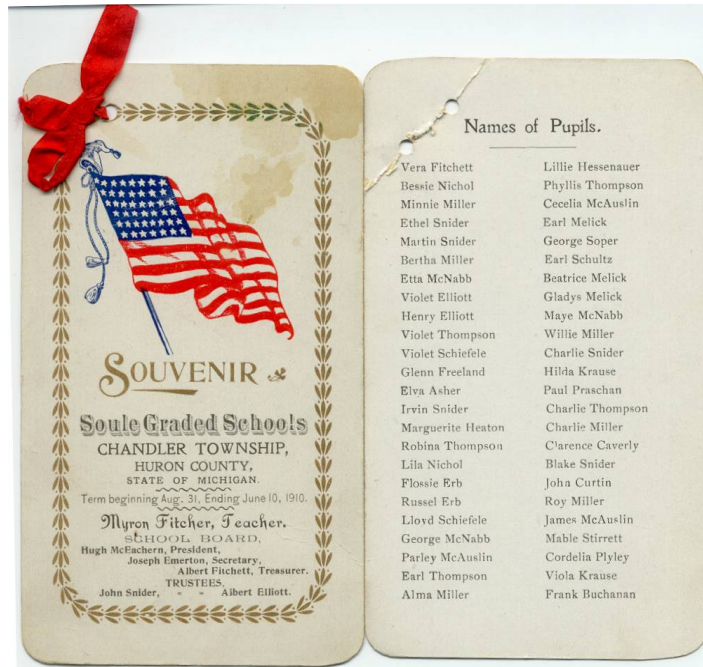 SOUVENIR
Soule Graded Schools
CHANDLER TOWNSHIP,
HURON COUNTY,
STATE OF MICHIGAN.
Term beginning Aug. 31, Ending June 10, 1910.
Myron Fitcher, Teacher.
SCHOOL BOARD,
Hugh McEachern, President,
Joseph Emerton, Secretary,
Albert Fitchett, Treasurer.
TRUSTEES,
John Snider, " " Albert Elliott.
Names of Pupils.
Vera Fitchett
Bessie Nichol
Minnie Miller
Ethel Snider
Martin Snider
Bertha Miller
Etta McNabb
Violet Elliott
Henry Elliott
Violet Thompson
Violet Schiefele
Glenn Freeland
Elva Asher
Irvin Snider
Marguerite Heaton
Robina Thompson
Lila Nichol
Flossie Erb
Russel Erb
Lloyd Schiefele
George McNabb
Parley McAuslin
Earl Thompson
Alma Miller
Lillie Hessenauer
Phyllis Thompson
Cecelia McAuslin
Earl Melick
George Soper
Earl Schultz
Beatrice Melick
Gladys Melick
Maye McNabb
Willie Miller
Charlie Snider
Hilda Krause
Paul Praschan
Charlie Thompson
Charlie Miller
Clarence Caverly
Blake Snider
John Curtin
Roy Miller
James McAuslin
Mable Stirrett
Cordelia Plyley
Viola Krause
Frank Buchanan